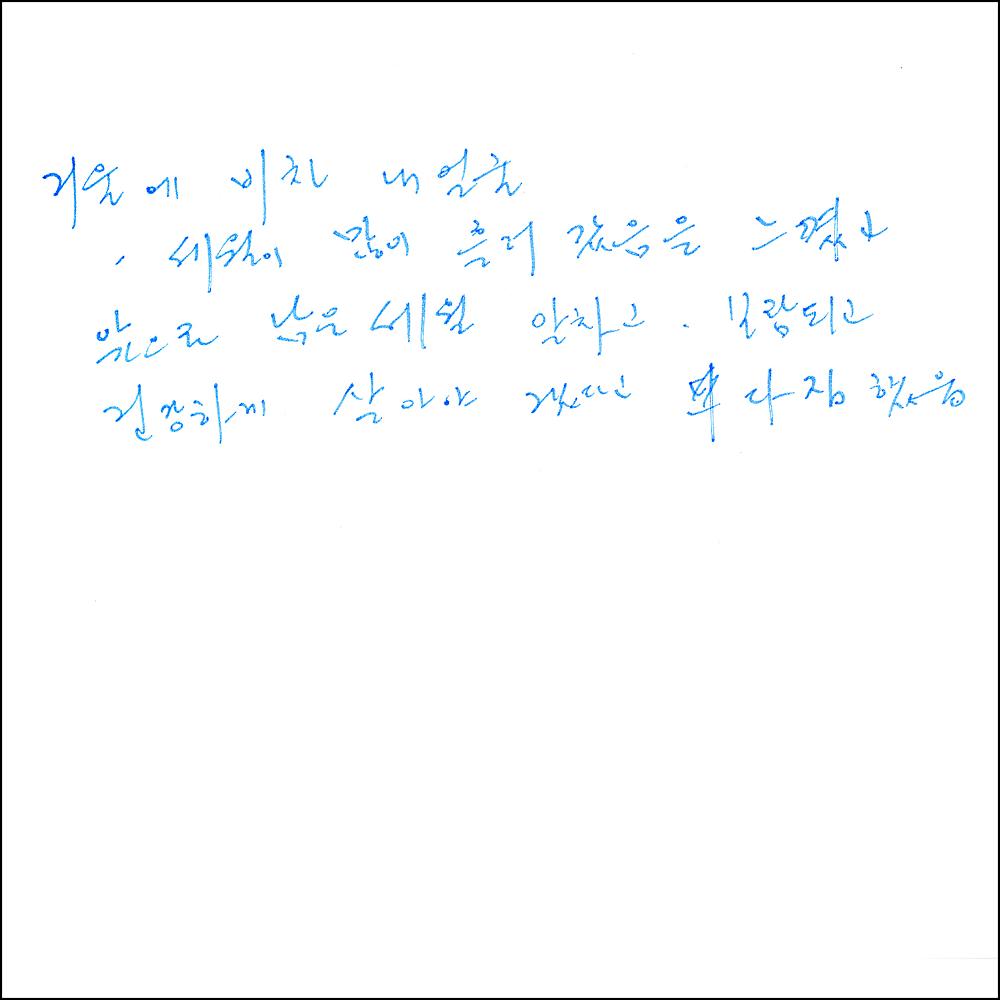 거울에 비친 내 얼굴
. 세월이 많이 흘러 갔음을 느꼈고
앞으로 남은 세월 알차고 . 보람되고
건강하게 살아야 겠다고 다짐했음